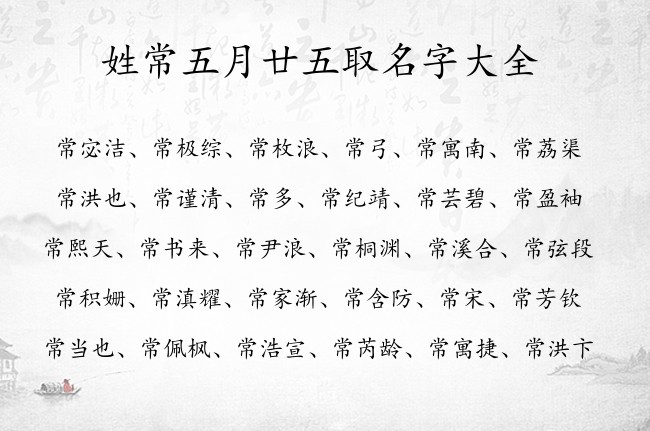 姓常五月廿五取名字大全
常宓洁、常极综、常枚浪、常弓、常寓南、常荔渠
常洪也、常谨清、常多、常纪靖、常芸碧、常盈袖
常熙天、常书来、常尹浪、常桐渊、常溪合、常弦段
常积姗、常滇耀、常家渐、常含防、常宋、常芳钦
常当也、常佩枫、常浩宣、常芮龄、常寓捷、常洪卞